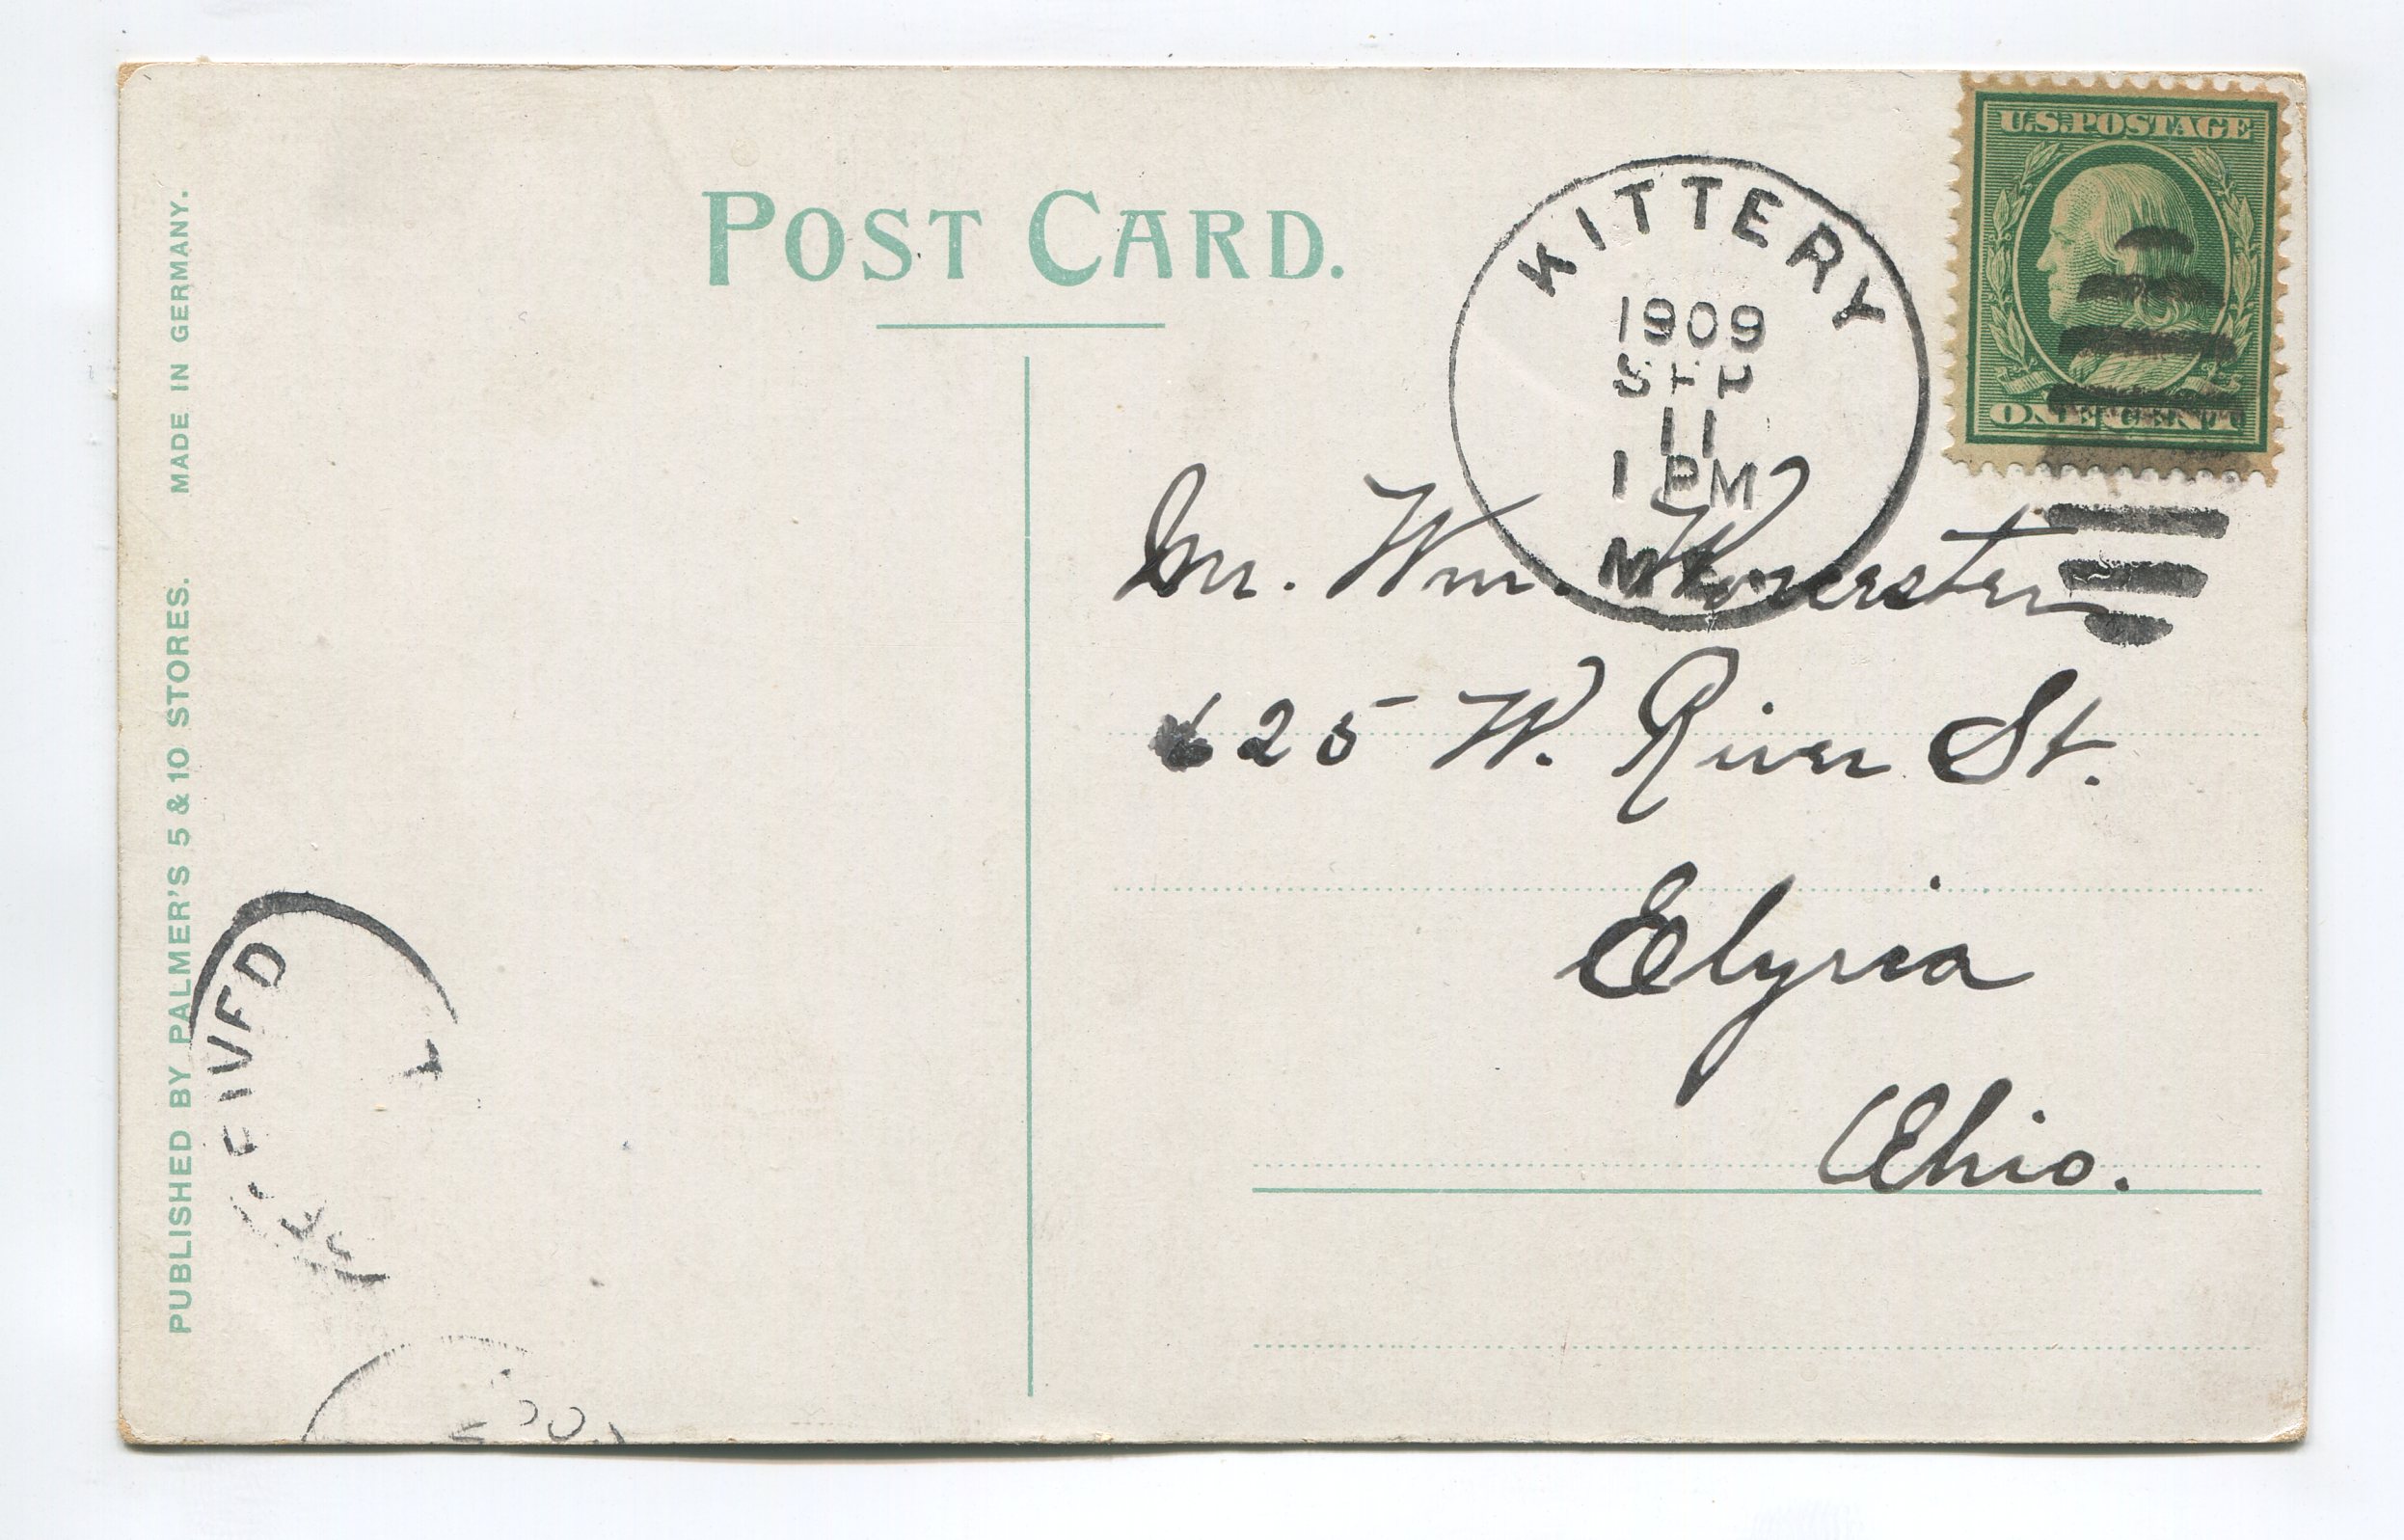 POST CARD.
U.S. POSTAGE
ONE CENT
KITTERY
1909
SEP
11
1 PM
ME.
Mr. Wm. Worcester
625 W. River St.
Elyria
Ohio.
PUBLISHED BY PALMER'S 5 & 10 STORES. MADE IN GERMANY.